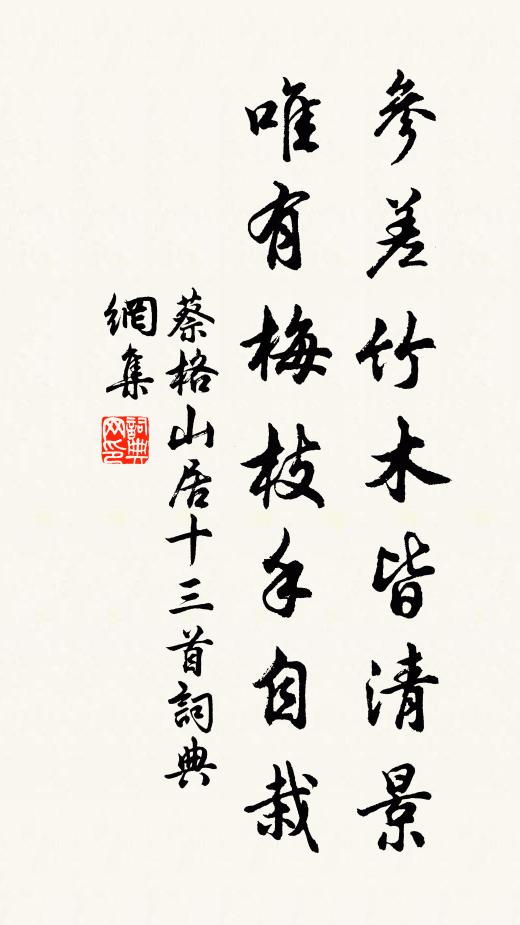 參差竹木皆清景
唯有梅枝手自栽
蔡格山居十三首詞典
網集
詞典網印